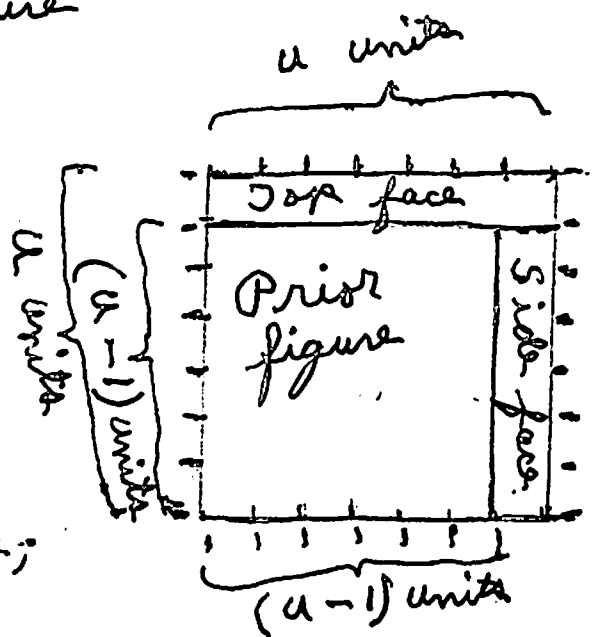 ure
u units
Top face
u units
(u-1) units
Prior
figure
Side face.
;
(u-1) units